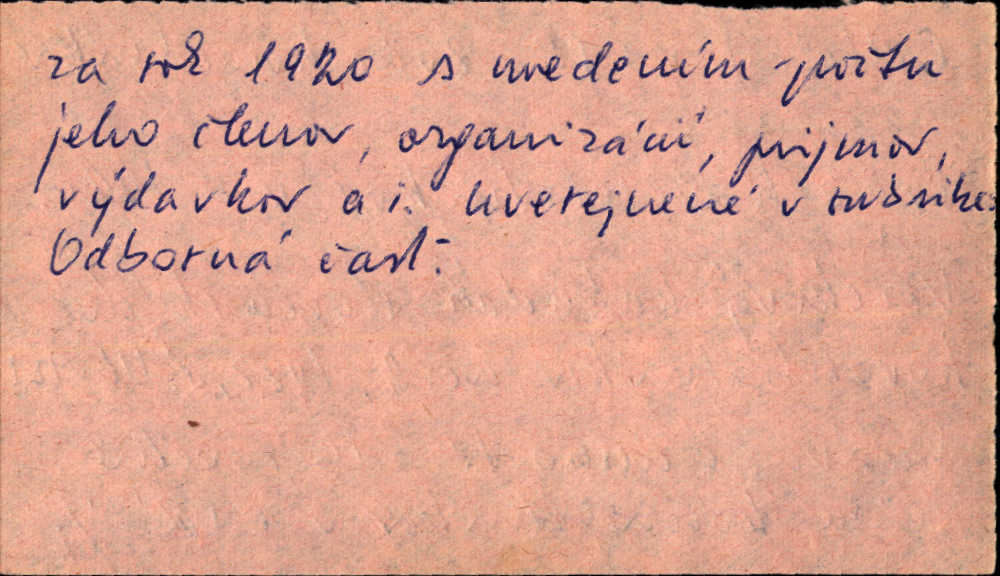 za rok 1920 s uvedením počtu
jeho členov, organizácií, príjmov,
výdavkov a i. uverejnené v rubrike:
Odborná časť.